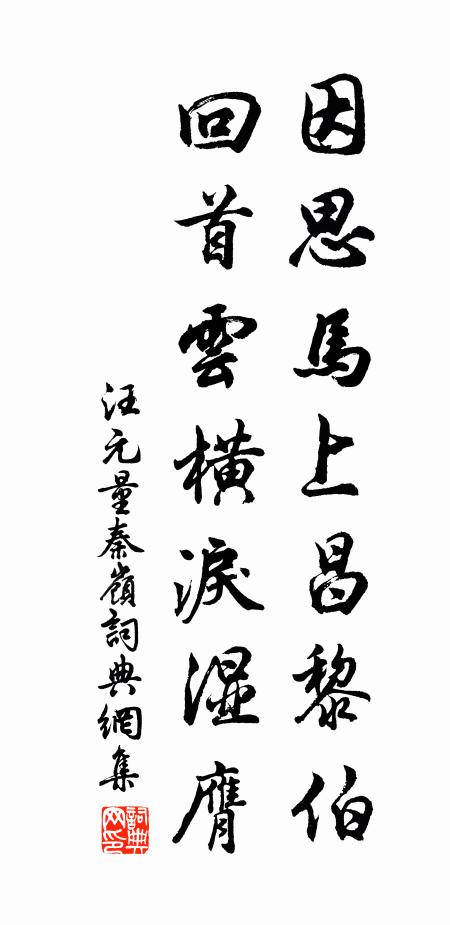 因思馬上昌黎伯
回首雲橫淚濕膺
汪元量秦嶺詞典網集
詞典网印